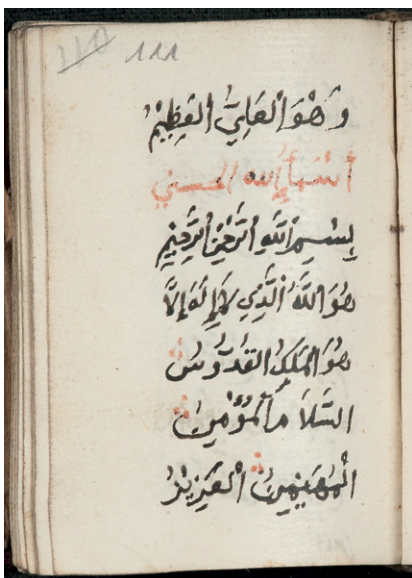 110 111
وَهُوَ الْعَلِيُّ الْعَظِيمُ
أَسْمَاءُ اللهِ الْحُسْنَى
بِسْمِ اللَّهِ الرَّحْمَنِ الرَّحِيمِ
هُوَ اللَّهُ الَّذِي لَا إِلَهَ إِلَّا
هُوَ الْمَلِكُ الْقُدُّوسُ
السَّلَامُ الْمُؤْمِنُ
الْمُهَيْمِنُ الْعَزِيزُ